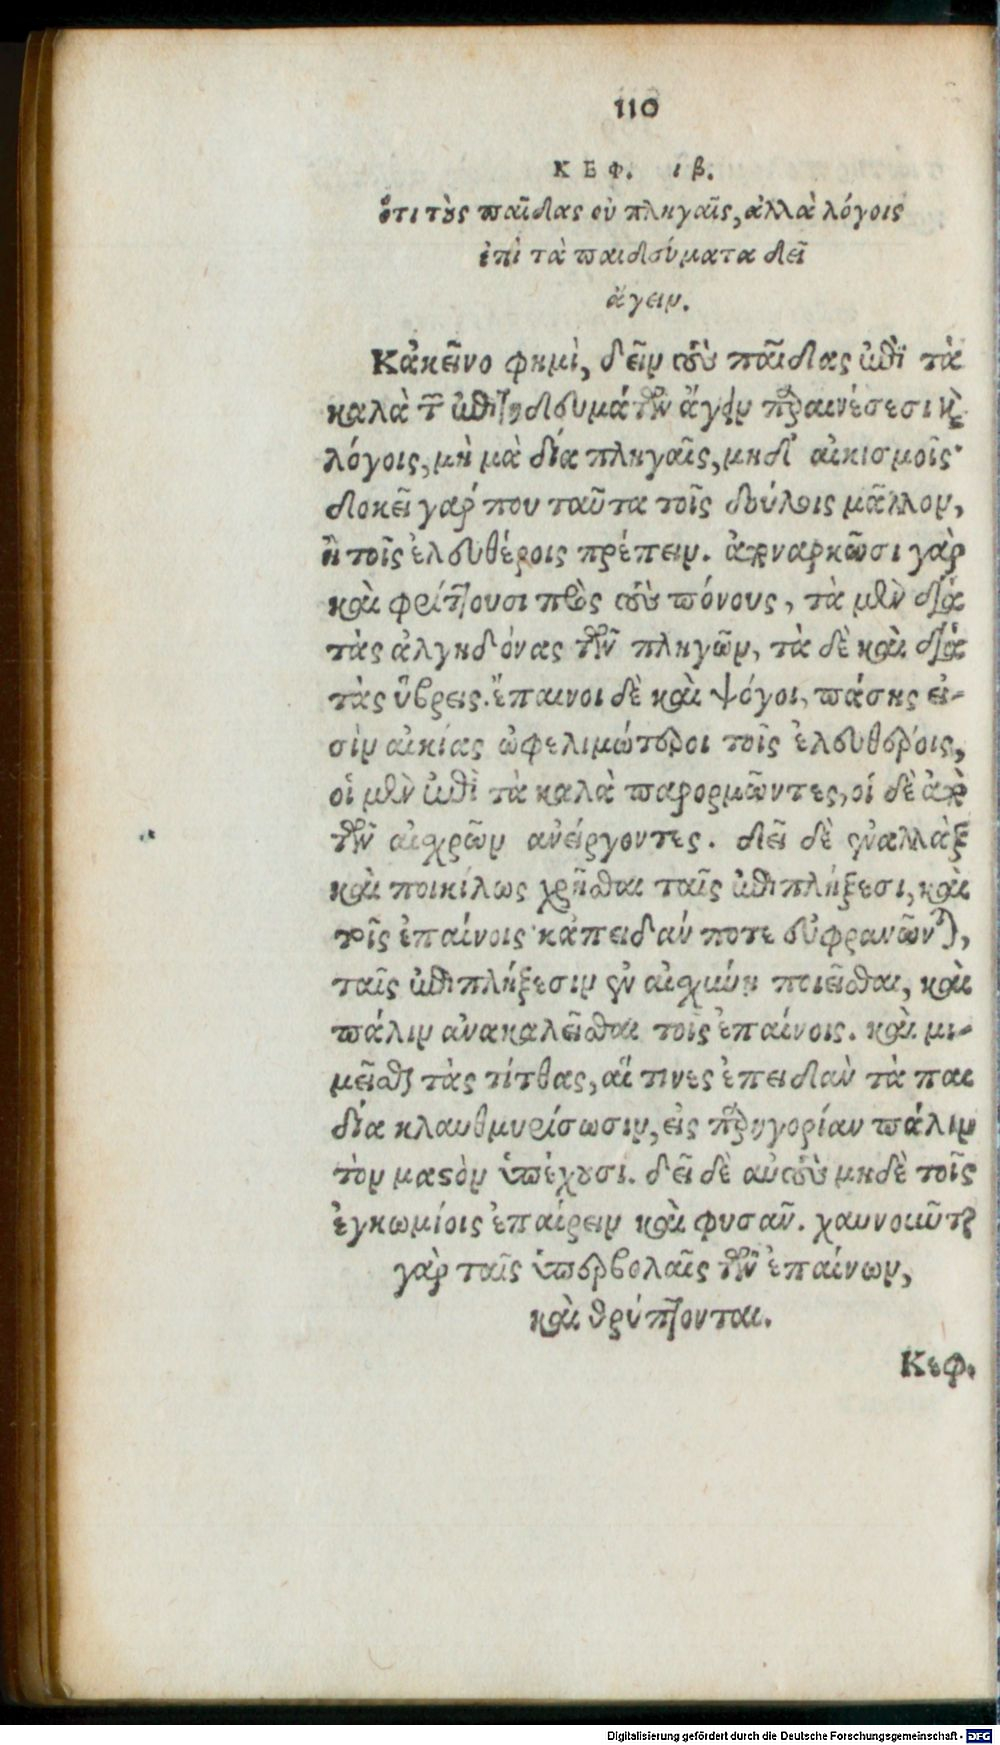 110
ΚΕΦ. ιβ.
ὅτι τοὺς παῖδας οὐ πληγαῖς, ἀλλὰ λόγοις
ἐπὶ τὰ παιδεύματα δεῖ
ἄγειν.
Κἀκεῖνο φημὶ, δεῖν τοὺς παῖδας ἐπὶ τὰ
καλὰ τῶν ἐπιτηδευμάτων ἄγειν παραινέσεσι καὶ
λόγοις, μὴ μὰ δία πληγαῖς, μηδ' αἰκισμοῖς·
δοκεῖ γάρ που ταῦτα τοῖς δούλοις μᾶλλον,
ἢ τοῖς ἐλευθέροις πρέπειν. ἀποναρκῶσι γὰρ
καὶ φρίττουσι πρὸς τοὺς πόνους, τὰ μὲν διὰ
τὰς ἀλγηδόνας τῶν πληγῶν, τὰ δὲ καὶ διὰ
τὰς ὕβρεις. ἔπαινοι δὲ καὶ ψόγοι, πάσης εἰ-
σὶν αἰκίας ὠφελιμώτεροι τοῖς ἐλευθέροις,
οἱ μὲν ἐπὶ τὰ καλὰ παρορμῶντες, οἱ δὲ ἀπὸ
τῶν αἰσχρῶν ἀνείργοντες. δεῖ δὲ ἐναλλὰξ
καὶ ποικίλως χρῆσθαι ταῖς ἐπιπλήξεσι, καὶ
τοῖς ἐπαίνοις· κἀπειδάν ποτε εὐφρανῶνται,
ταῖς ἐπιπλήξεσιν ἐν αἰσχύνῃ ποιεῖσθαι, καὶ
πάλιν ἀνακαλεῖσθαι τοῖς ἐπαίνοις. καὶ μι-
μεῖσθαι τὰς τίτθας, αἵ τινες ἐπειδὰν τὰ παι
δία κλαυθμυρίσωσιν, εἰς παρηγορίαν πάλιν
τὸν μαστὸν ὑπέχουσι. δεῖ δὲ αὐτοὺς μηδὲ τοῖς
ἐγκωμίοις ἐπαίρειν καὶ φυσᾶν. χαυνοῦνται
γὰρ ταῖς ὑπερβολαῖς τῶν ἐπαίνων,
καὶ θρύπτονται.
Κεφ.
Digitalisierung gefördert durch die Deutsche Forschungsgemeinschaft - DFG